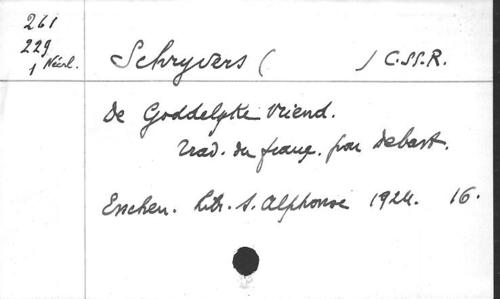 261
229
1 Néerl.
Schryvers ( ) C.SS.R.
De Goddelyke Vriend.
Trad. du franç. par Debast.
Esschen. libr. S. Alphonse 1924. 16.